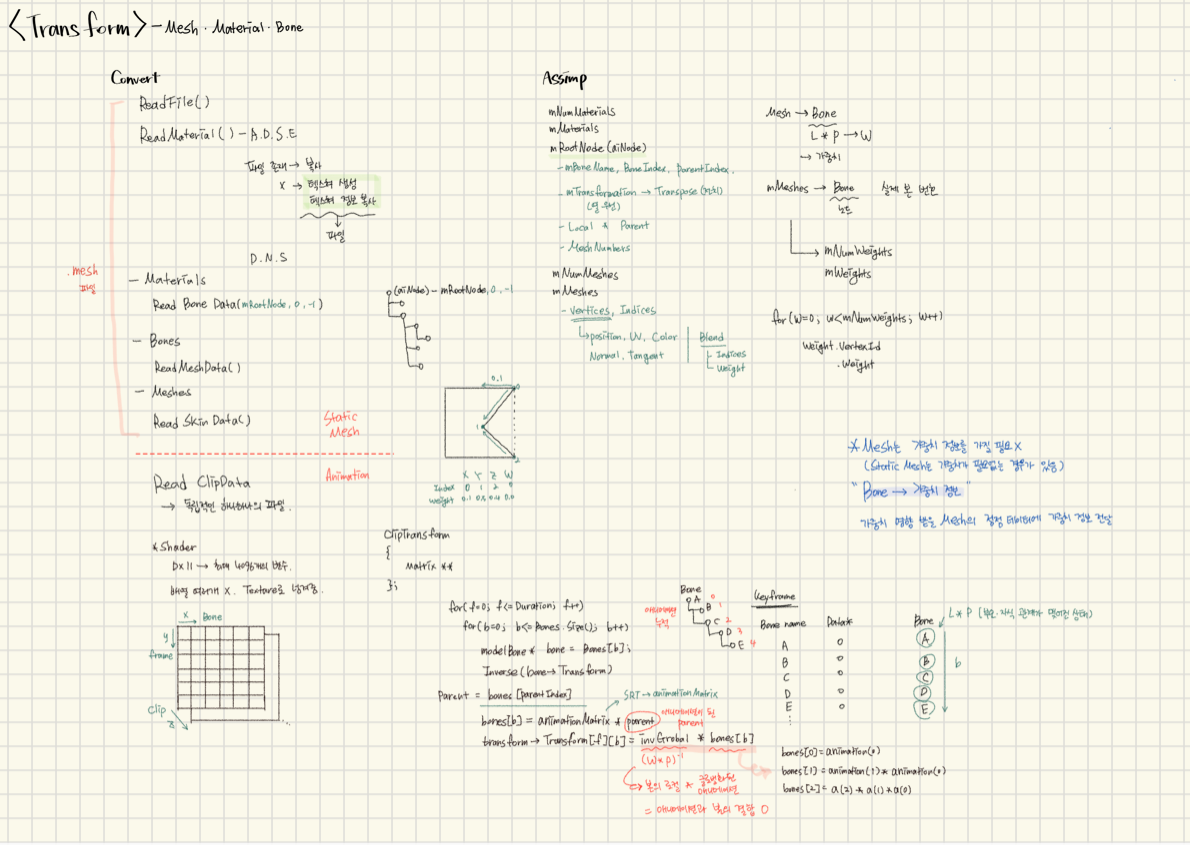 <Transform> - Mesh · Material · Bone
Convert
ReadFile()
ReadMaterial() - A.D.S.E
파일 존재 → 복사
X → 텍스쳐 생성
텍스쳐 정보 복사
파일
D.N.S
.mesh
파일
- Materials
Read Bone Data(mRootNode, 0, -1)
- Bones
ReadMeshData()
- Meshes
Read Skin Data()
Static
Mesh
Animation
Read ClipData
→ 독립적인 하나하나의 파일.
*Shader
DX11 → 최대 4096개의 변수.
배열 여러개 X. Texture로 넘겨줌.
X → Bone
y
frame
Clip
z
(aiNode) - mRootNode, 0, -1
0.1
X Y Z W
Index 0 1 2 0
Weight 0.1 0.5 0.4 0.0
ClipTransform
{
Matrix **
};
Assimp
mNumMaterials
mMaterials
mRootNode (aiNode)
- mBoneName, BoneIndex, parentIndex.
- mTransformation → Transpose (전치)
(열 우선)
- Local * Parent
- MeshNumbers
mNumMeshes
mMeshes
- Vertices, Indices
position, UV, Color
Normal, Tangent
Blend
- Indices
- Weight
Mesh → Bone
L * P → W
→ 가중치
mMeshes → Bone 실제 본 번호
노드
mNumWeights
mWeights
for (w=0; w<mNumWeights; w++)
Weight.VertexId
.Weight
* Mesh는 가중치 정보를 가질 필요 X
(Static Mesh는 가중치가 필요없는 경우가 있음)
"Bone → 가중치 정보"
가중치 영향 받을 Mesh의 정점 데이터에 가중치 정보 전달
for(f=0; f<=Duration; f++)
for(b=0; b<=Bones.Size(); b++)
modelBone * bone = Bones[b];
Inverse(bone→Transform)
Parent = bones[parentIndex]
SRT → animationMatrix
bones[b] = animationMatrix * parent
애니메이션이 된
parent
transform → Transform[f][b] = invGrobal * bones[b]
(W*P)⁻¹
본의 로컬 * 글로벌화된
애니메이션
= 애니메이션과 본의 결합 O
Bone
애니메이션
누적
A 0
B 1
C 2
D 3
E 4
Keyframe
Bone name Data
A 0
B 0
C 0
D 0
E 0
Bone
L * P (부모·자식 관계가 맺어진 상태)
A
B
C
D
E
b
bones[0] = animation(0)
bones[1] = animation(1) * animation(0)
bones[2] = a(2) * a(1) * a(0)